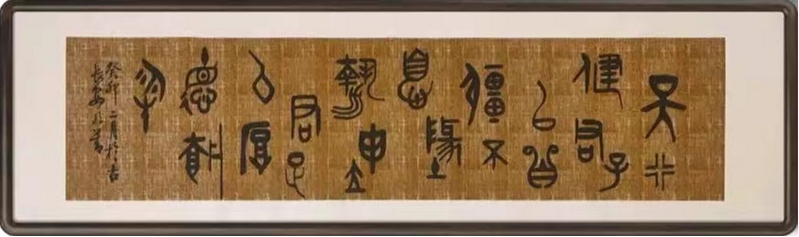 天行
健君子
以自
彊不
息地
勢坤
君子
以厚
德載
物
癸卯二月於古
長安